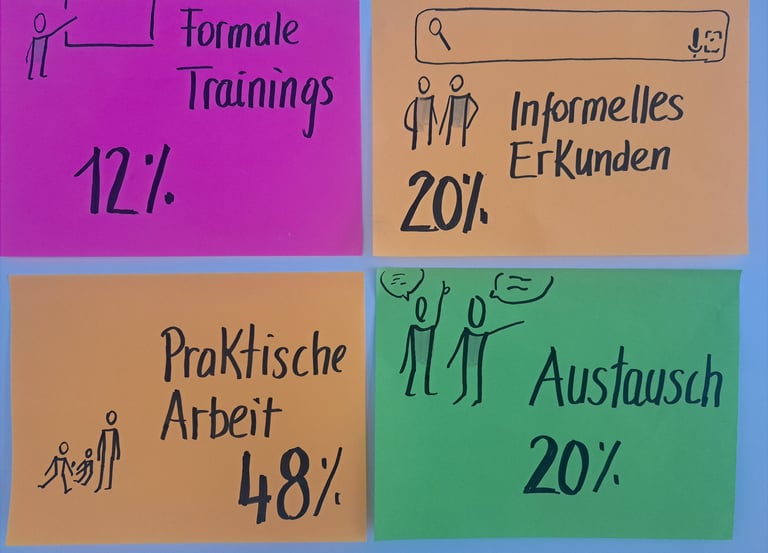 Formale
Trainings
12%
Informelles
Erkunden
20%
Praktische
Arbeit
48%
Austausch
20%